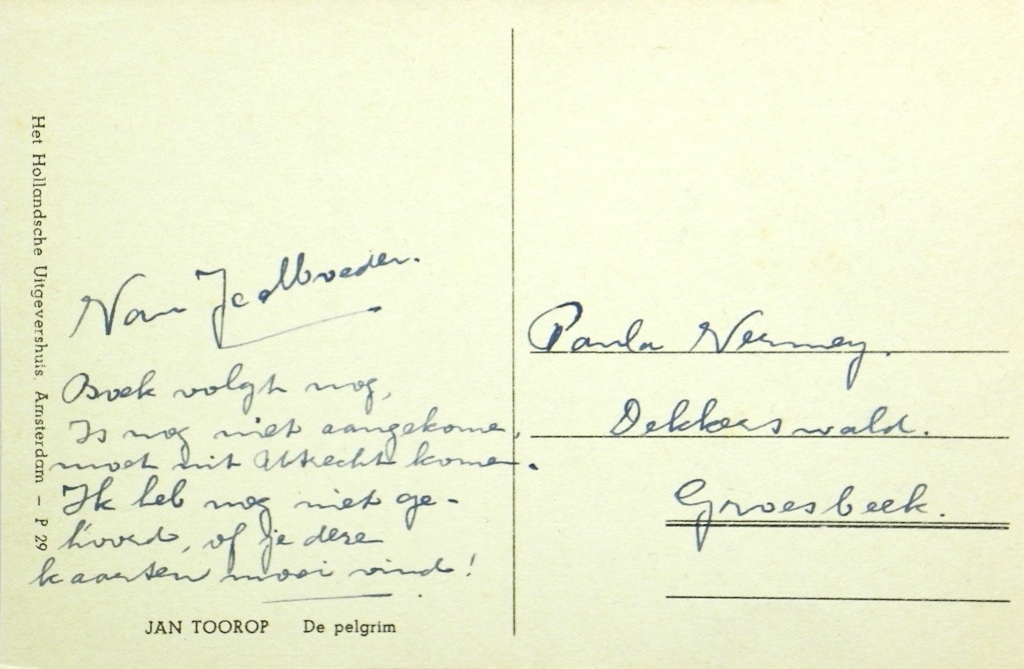 Het Hollandsche Uitgevershuis. Amsterdam – P 29
Van
Boek volgt nog,
Is nog niet aangekomen,
moet uit Utrecht komen.
Ik heb nog niet ge-
hoord, of je deze
kaarten mooi vind!
JAN TOOROP De pelgrim
Paula Vermey.
Dekkerswald.
Groesbeek.